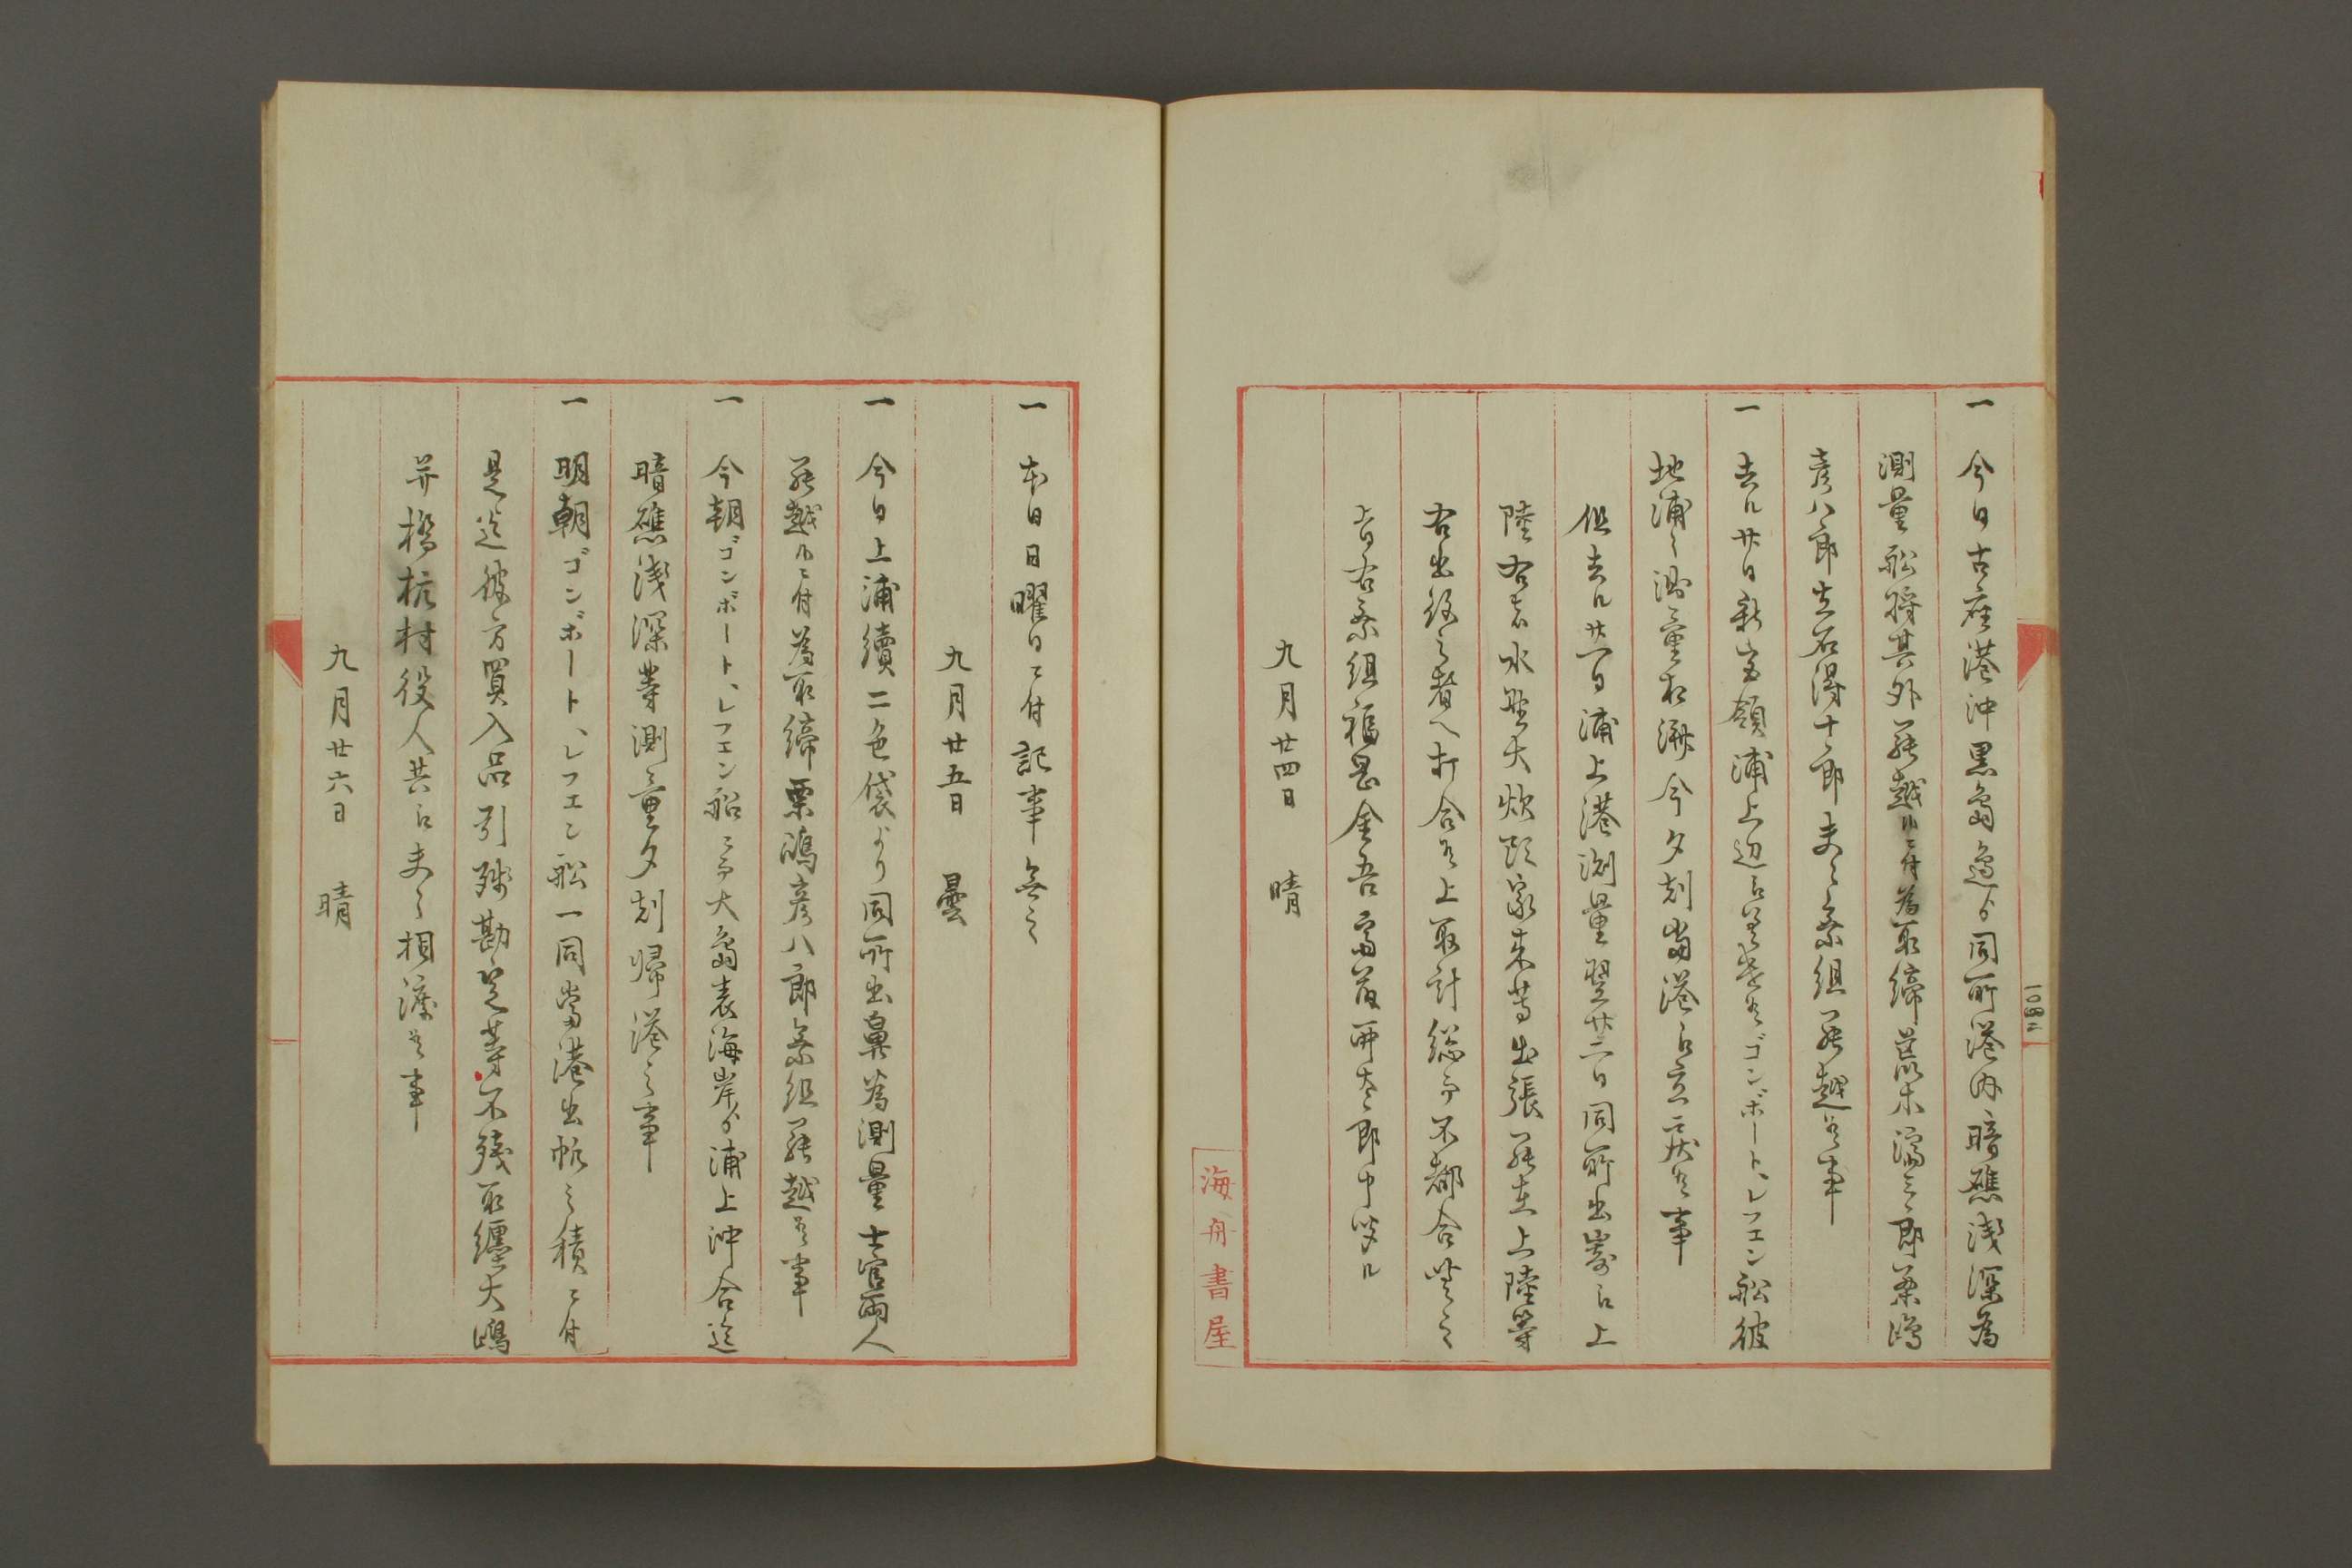 一 今日古座港沖黒島邉ゟ同所港内暗礁浅深為
測量船將其外罷越ルニ付為取締荒木濤三郎粟嶋
彦八郎立石得十郎夫々乗組罷越候事
一 去ル廿日新宮領浦上辺江罷越候ゴンボート、レフエン船彼
地浦々測量相済今夕刻当港江立戻候事
但去ル廿一日浦上港測量翌廿二日同所出寄江上
陸右者水野大炊頭家来等出張罷在上陸等
右出役之者へ打合候上取計総而不都合無之
旨右乗組福恩金吾富永市太郎申聞ル
九月廿四日 晴
海舟書屋
一 本日日曜日ニ付記事無之
九月廿五日 曇
一 今日上浦續二色袋より同所出鼻為測量士官両人
罷越ルニ付為取締粟嶋彦八郎乗組罷越候事
一 今朝ゴンボート、レフエン船ニ而大島表海岸ゟ浦上沖合迄
暗礁浅深等測量夕刻帰港之事
一 明朝ゴンボート、レフエン船一同當港出帆之積ニ付
是迄彼方買入品引殘勘定等不残取纏大嶋
并橋杭村役人共江夫々相渡候事
九月廿六日 晴